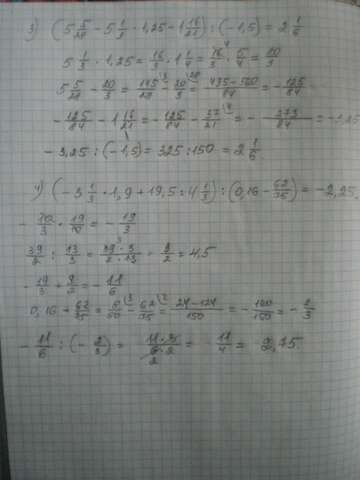 3) (5 5/28 - 5 1/3 · 1,25 - 1 16/21) : (-1,5) = 2 1/6
5 1/3 · 1,25 = 16/3 · 1 1/4 = 16/3 · 5/4 = 20/3
5 5/28 - 20/3 = 145/28 - 20/3 = 435-560/84 = -125/84
-125/84 - 1 16/21 = -125/84 - 37/21 = - 273/84 =
-3,25 : (-1,5) = 325 : 150 = 2 1/6
4) (-3 1/3 · 1,9 + 19,5 : 4 1/3) : (0,16 - 62/75) = -2,25
- 10/3 · 19/10 = - 19/3
39/2 : 13/3 = 39·3/2·13 = 9/2 = 4,5
- 19/3 + 9/2 = - 11/6
= 24-124/150 = - 100/150 = - 2/3
- 11/6 : (- 2/3) = = - 11/4 = 2,75